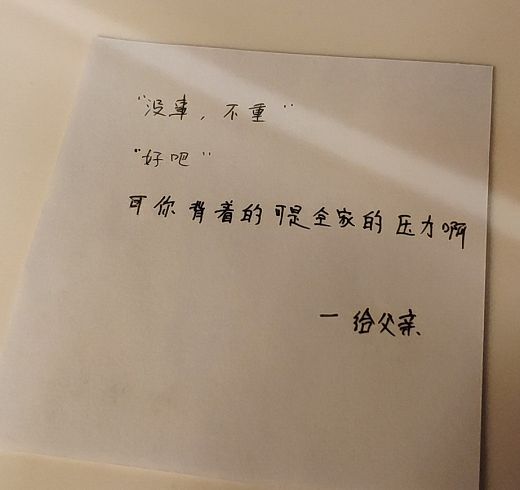 "没事，不重"
"好吧"
可你背着的可是全家的压力啊
一 给父亲